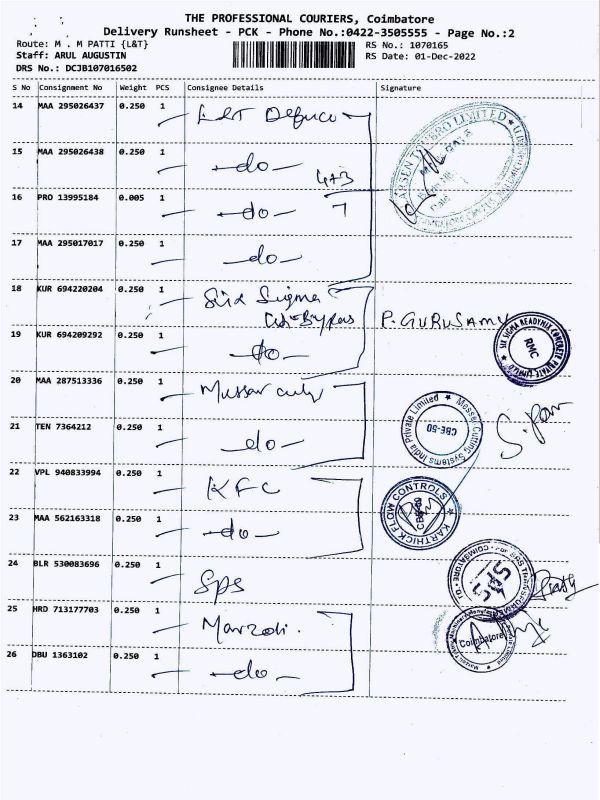 THE PROFESSIONAL COURIERS, Coimbatore
Delivery Runsheet - PCK - Phone No.:0422-3505555 - Page No.:2
Route: M . M PATTI {L&T} RS No.: 1070165
Staff: ARUL AUGUSTIN RS Date: 01-Dec-2022
DRS No.: DCJB107016502
S No Consignment No Weight PCS Consignee Details Signature
14 MAA 295026437 0.250 1 L&T Defence
15 MAA 295026438 0.250 1 -do-
4+3
16 PRO 13995184 0.005 1 -do- 7
17 MAA 295017017 0.250 1 -do-
18 KUR 694220204 0.250 1 Six Sigma
P. GURUSAMY
19 KUR 694209292 0.250 1 -do-
SIX SIGMA READYMIX CONCRETE PRIVATE LIMITED
RMC
20 MAA 287513336 0.250 1
Messer Cutting Systems India Private Limited
CBE-50
21 TEN 7364212 0.250 1 -do-
22 VPL 940833994 0.250 1 KFC
KARTHICK FLOW CONTROLS
23 MAA 562163318 0.250 1 -do-
24 BLR 530083696 0.250 1 SPS
25 HRD 713177703 0.250 1 Marzoli.
Coimbatore
26 DBU 1363102 0.250 1 -do-